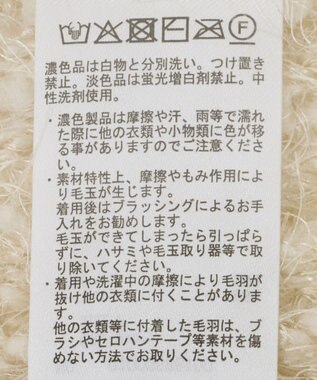 F
濃色品は白物と分別洗い。つけ置き
禁止。淡色品は蛍光増白剤禁止。中
性洗剤使用。
・濃色製品は摩擦や汗、雨等で濡れ
た際に他の衣類や小物類に色が移
る事がありますのでご注意くださ
い。
・素材特性上、摩擦やもみ作用によ
り毛玉が生じます。
着用後はブラッシングによるお手
入れをお勧めします。
毛玉ができてしまったら引っぱら
ずに、ハサミや毛玉取り器等で取
り除いてください。
・着用や洗濯中の摩擦により毛羽が
抜け他の衣類に付くことがありま
す。
他の衣類等に付着した毛羽は、ブ
ラシやセロハンテープ等素材を傷
めない方法でお取りください。